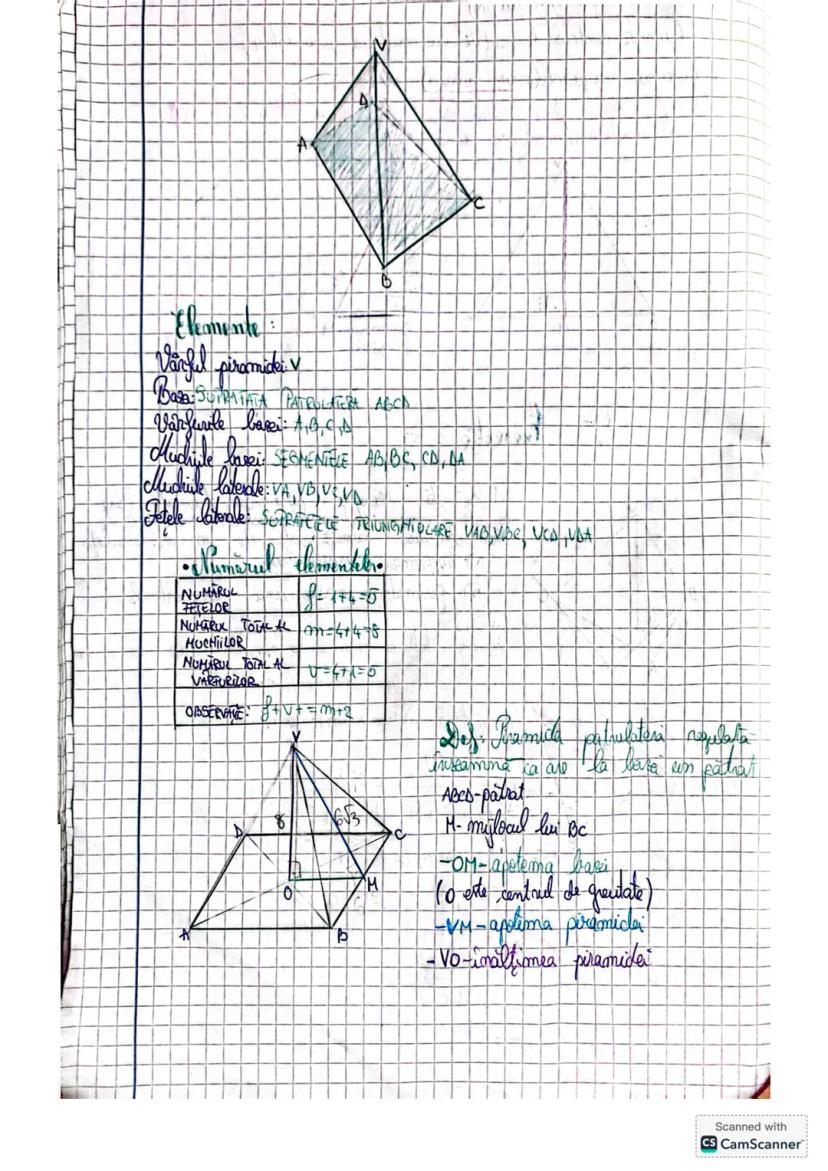 V
D
A
C
B
Elemente:
Vârful piramidei: V
Baza: SUPRAFAȚA PATRULATERĂ ABCD
Vârfurile bazei: A,B,C,D
Muchiile bazei: SEGMENTELE AB,BC, CD, DA
Muchiile laterale: VA, VB, VC, VD
Fețele laterale: SUPRAFEȚELE TRIUNGHIULARE VAB,VBC, VCD, VDA
• Numărul elementelor •
NUMĂRUL FEȚELOR f=1+4=5
NUMĂRUL TOTAL AL MUCHIILOR m=4+4=8
NUMĂRUL TOTAL AL VÂRFURILOR v=4+1=5
OBSERVAȚIE: f+v+=m+2
V
8
6√3
D
C
O
M
A
B
Def: Piramida patrulateră regulată
înseamnă ca are la bază un pătrat
ABCD-pătrat
M-mijlocul lui BC
-OM-apotema bazei
(O este centrul de greutate)
-VM-apotema piramidei
-VO-înălțimea piramidei
Scanned with
CS CamScanner